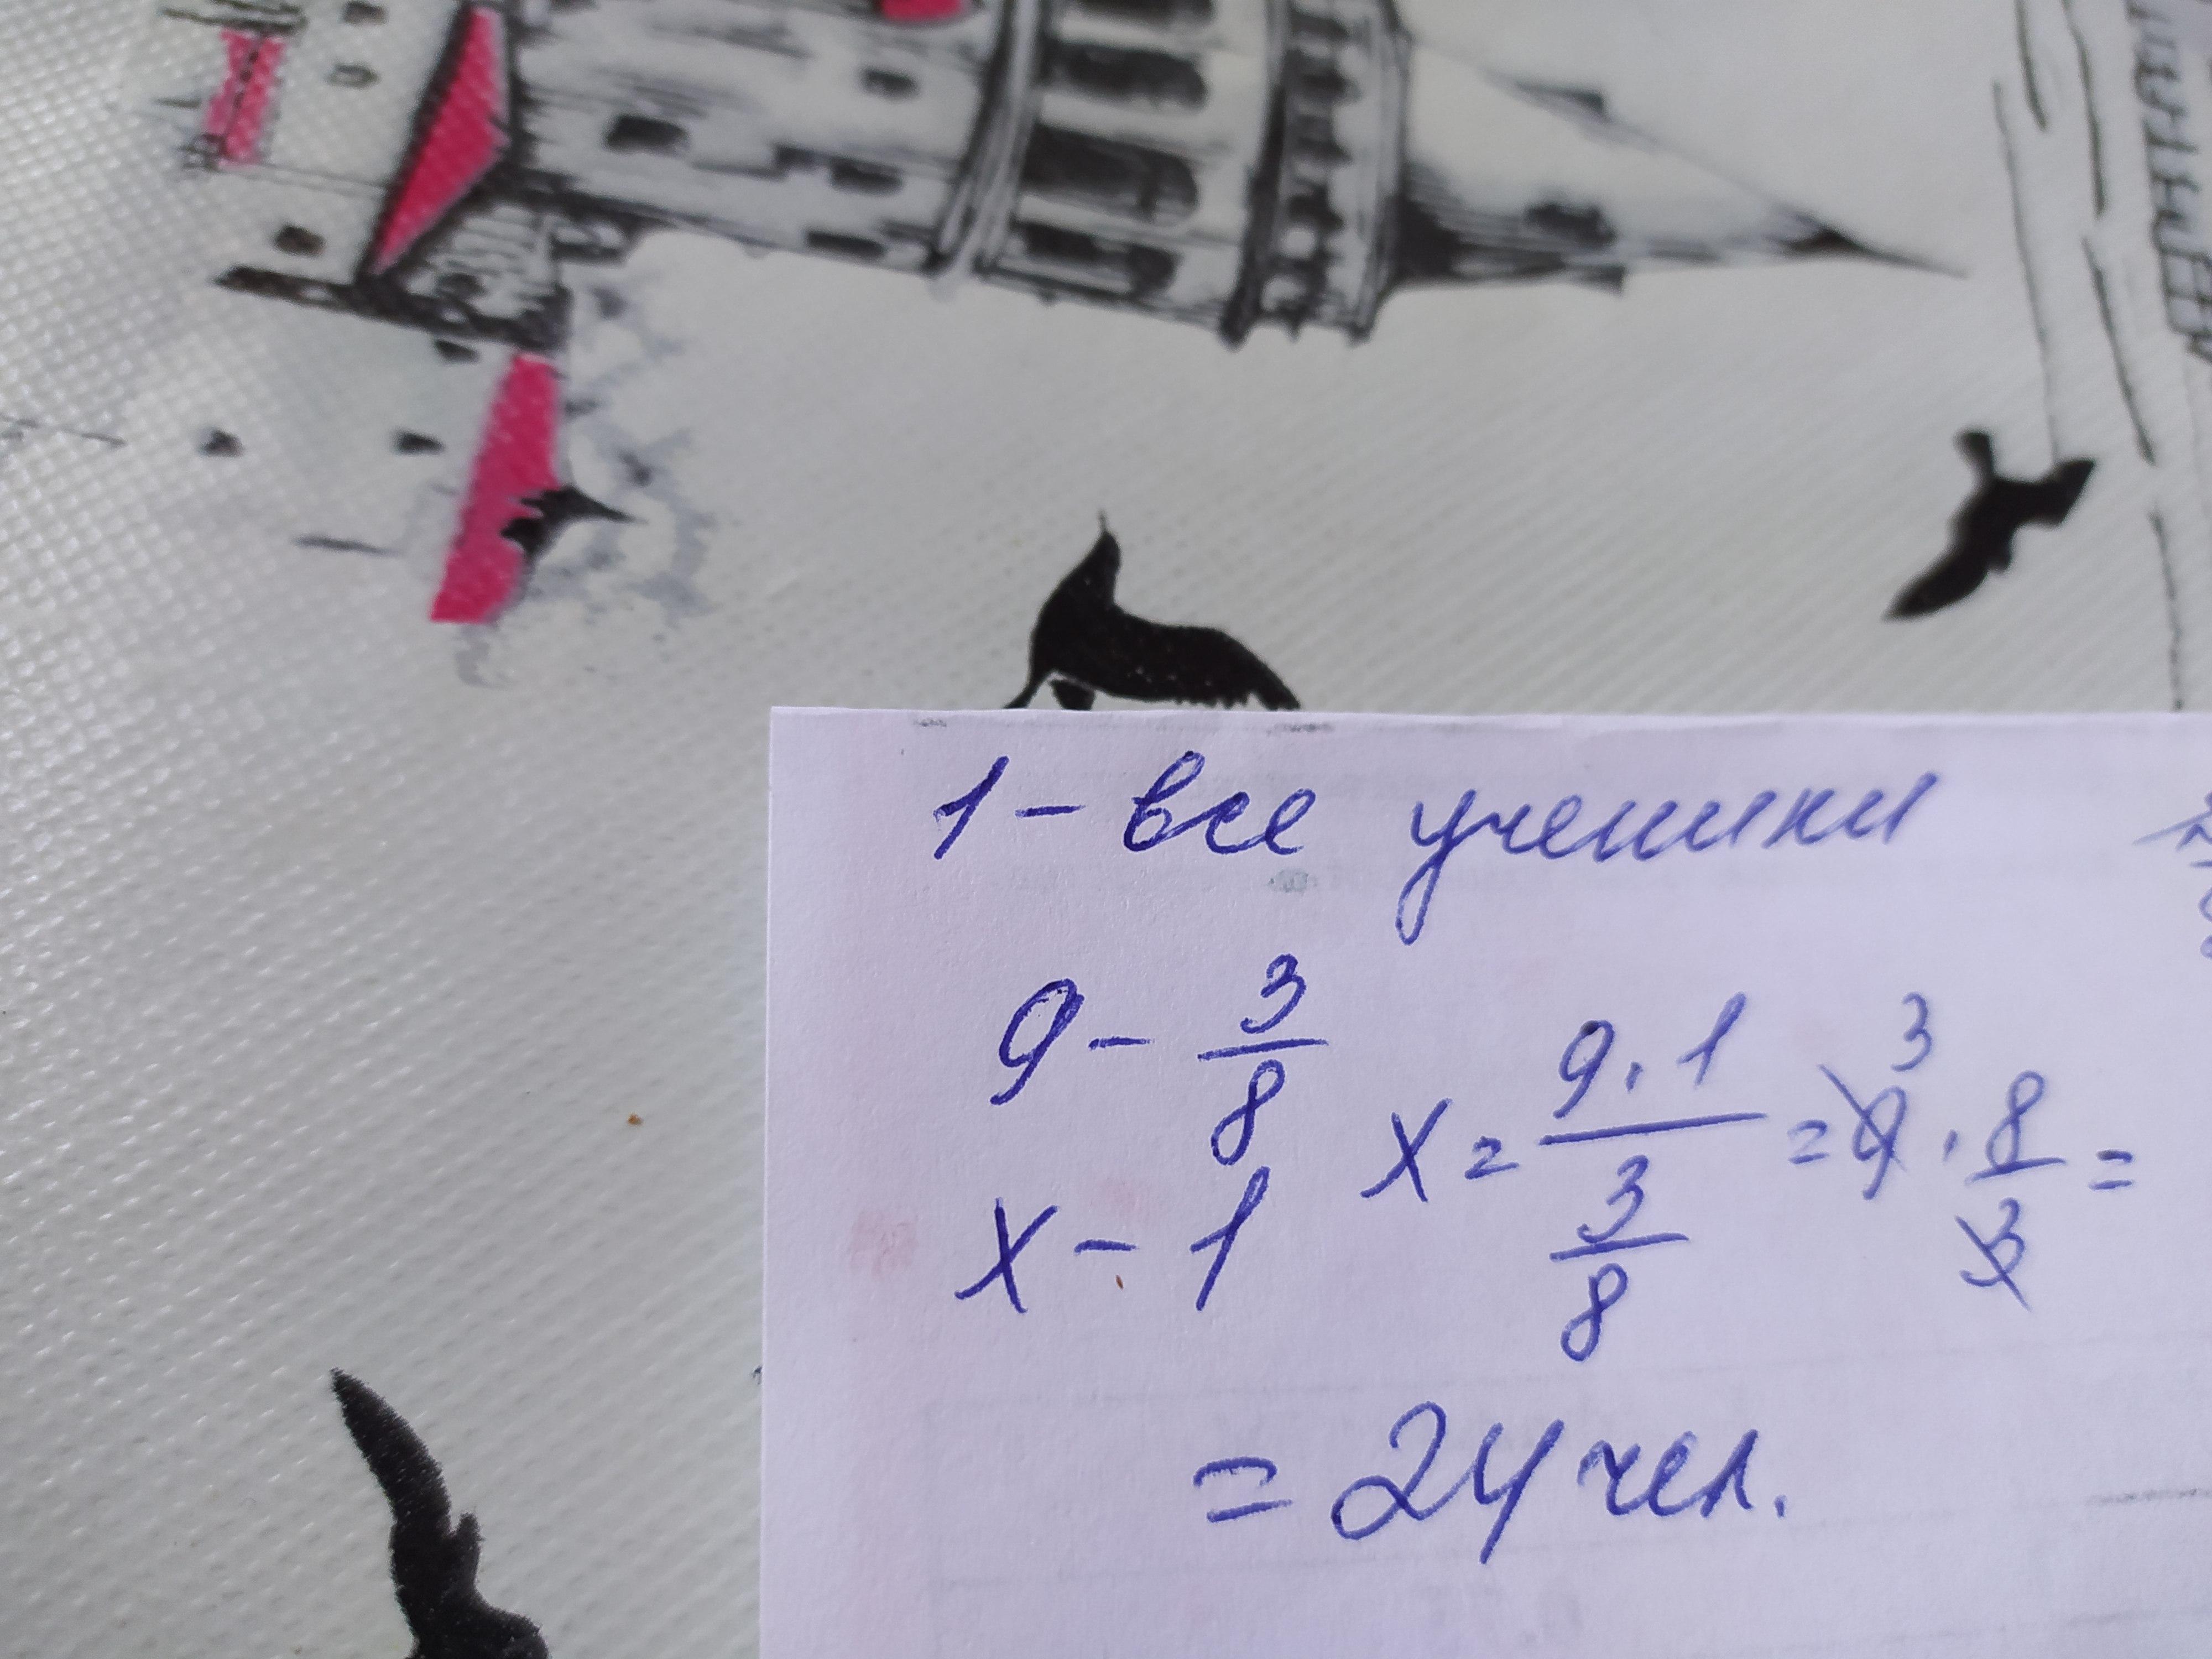 1 – все ученики
9 – 3/8
x – 1 x = 9·1 / 3/8 = 9 3 · 8/3 =
= 24 чел.